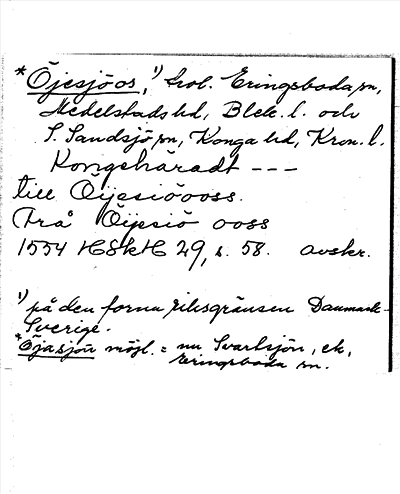 *Öjesjöos,¹) trol. Eringsboda sn,
Medelstads hd, Blek. l. och
S. Sandsjö sn, Konga hd, Kron. l.
Kongehäradt ---
till Öijesiöooss.
Frå Öijesiö ooss
1554 HSkH 29, s. 58. avskr.
¹) på den forna riksgränsen Danmark-
Sverige.
*Öjasjön möjl. = nu Svartsjön, ek,
Eringsboda sn.